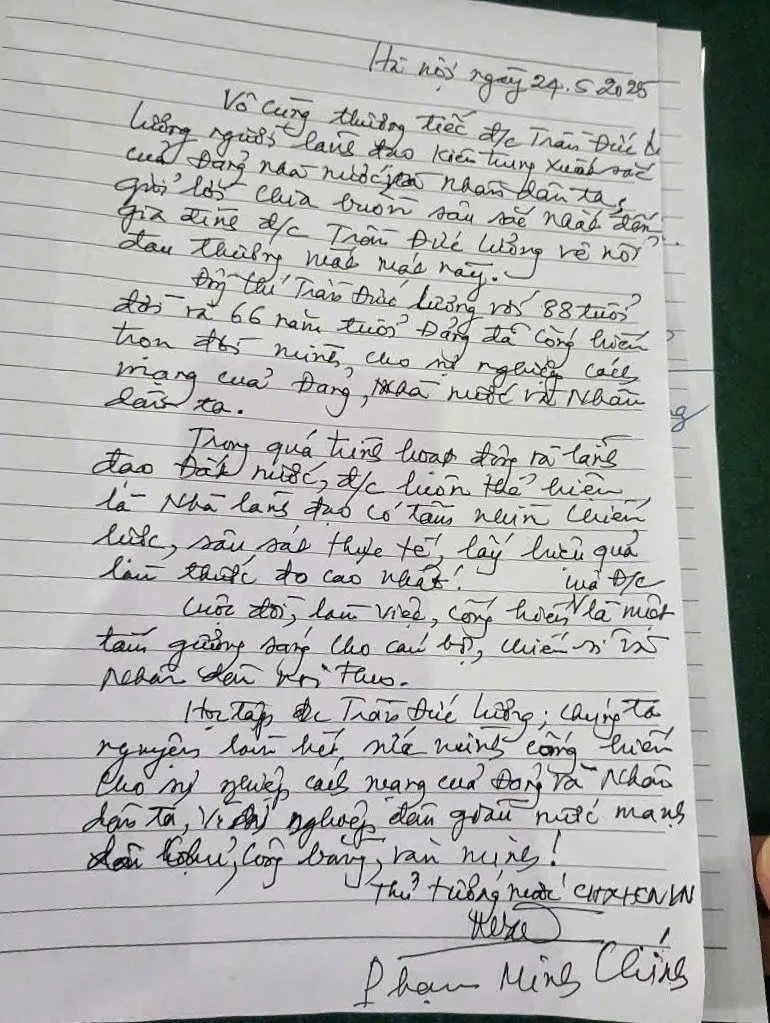 Hà nội ngày 24.5 2025
Vô cùng thương tiếc đ/c Trần Đức
Lương người lãnh đạo kiên trung xuất sắc
của Đảng nhà nước và nhân dân ta,
gửi lời chia buồn sâu sắc nhất đến
gia đình đ/c Trần Đức Lương về nỗi
đau thương mất mát này.
Đồng chí Trần Đức Lương với 88 tuổi
đời và 66 năm tuổi Đảng đã cống hiến
trọn đời mình, cho sự nghiệp cách
mạng của Đảng, Nhà nước và Nhân
dân ta.
Trong quá trình hoạt động và lãnh
đạo Đất nước, đ/c luôn thể hiện
là Nhà lãnh đạo có tầm nhìn chiến
lược, sâu sát thực tế, lấy hiệu quả
làm thước đo cao nhất!
Cuộc đời, làm việc, cống hiến của Đ/c là một
tấm gương sáng cho cán bộ, chiến sĩ và
Nhân dân noi theo.
Học tập đ/c Trần Đức Lương; chúng ta
nguyện làm hết sức mình cống hiến
cho sự nghiệp cách mạng của Đảng và Nhân
dân ta, vì sự nghiệp dân giàu nước mạnh
dân chủ, công bằng, văn minh!
Thủ tướng nước CHXHCNVN
Phạm Minh Chính